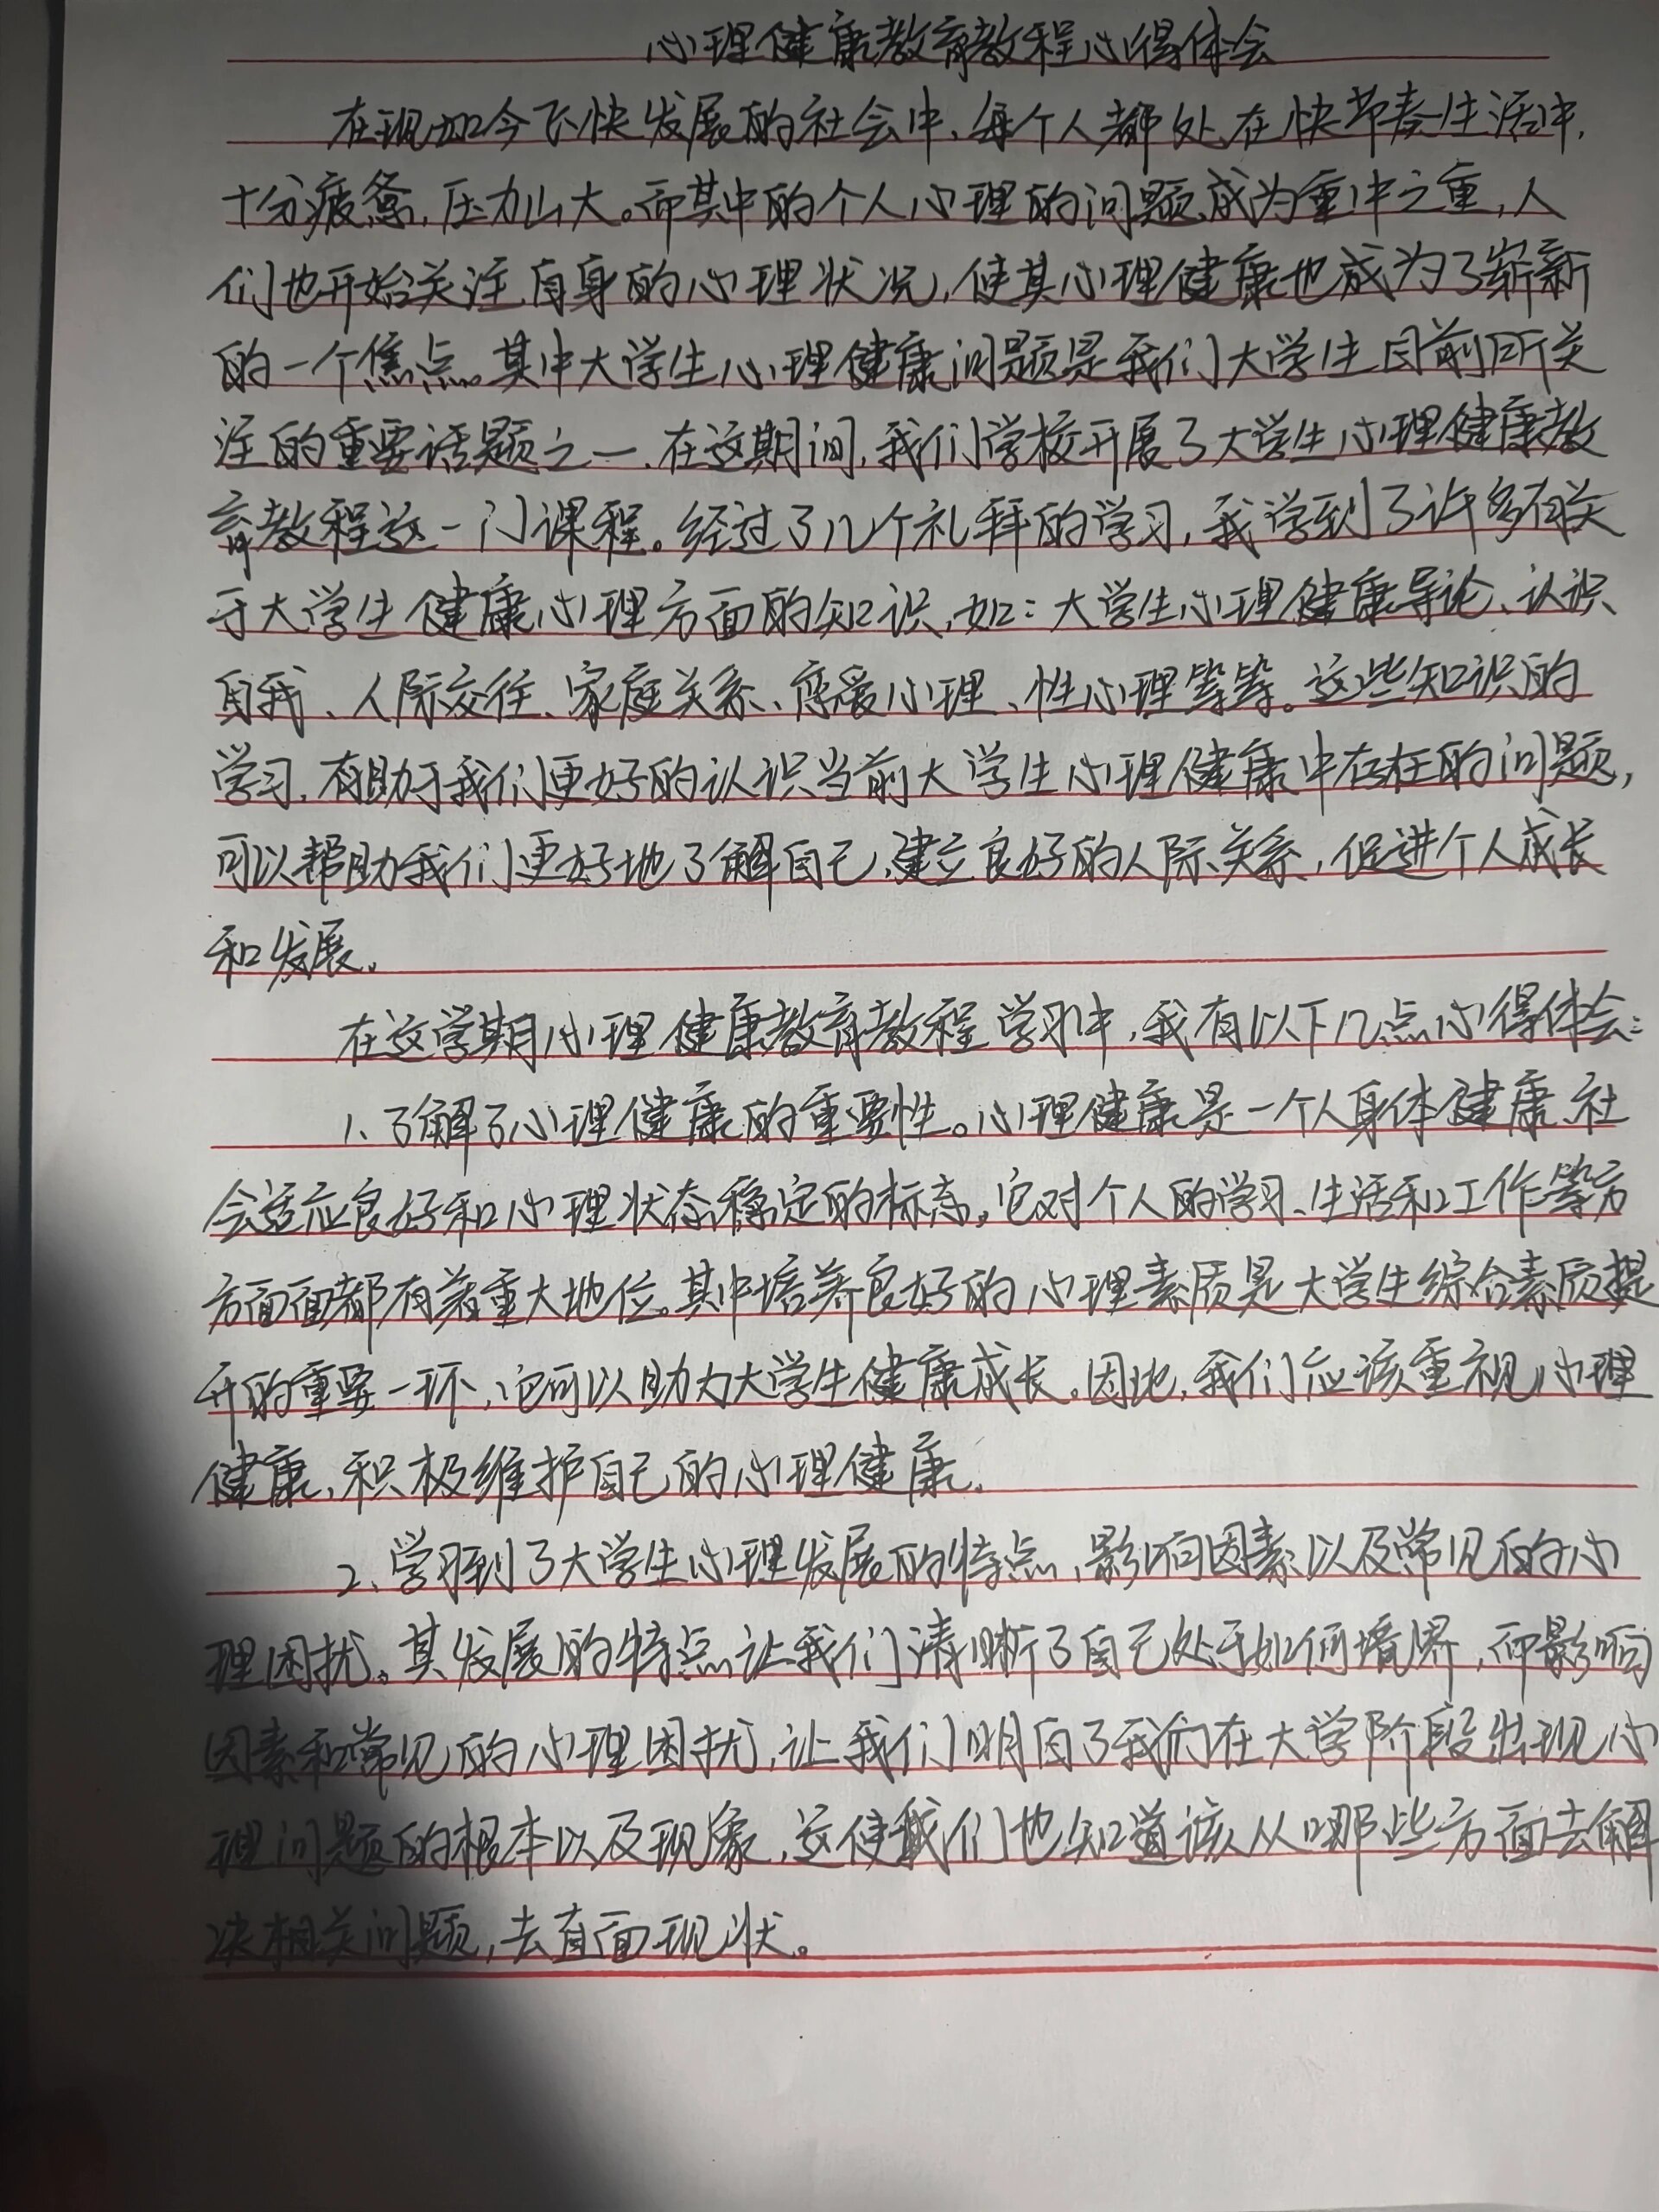 心理健康教育教程心得体会
在现如今飞快发展的社会中，每个人都处在快节奏生活中，
十分疲惫，压力山大。而其中的个人心理的问题成为重中之重，人
们也开始关注自身的心理状况，使其心理健康也成为了崭新
的一个焦点。其中大学生心理健康问题是我们大学生目前所关
注的重要话题之一，在这期间，我们学校开展了大学生心理健康教
育教程这一门课程。经过了几个礼拜的学习，我学到了许多有关
于大学生健康心理方面的知识，如：大学生心理健康导论、认识
自我、人际交往、家庭关系、恋爱心理、性心理等等。这些知识的
学习，有助于我们更好的认识当前大学生心理健康中存在的问题，
可以帮助我们更好地了解自己，建立良好的人际关系，促进个人成长
和发展。
在这学期心理健康教育教程学习中，我有以下几点心得体会：
1、了解了心理健康的重要性。心理健康是一个人身体健康、社
会适应良好和心理状态稳定的标志，它对个人的学习、生活和工作等方
方面面都有着重大地位。其中培养良好的心理素质是大学生综合素质提
升的重要一环，它可以助力大学生健康成长。因此，我们应该重视心理
健康，积极维护自己的心理健康。
2、学习到了大学生心理发展的特点、影响因素以及常见的心
理困扰。其发展的特点让我们清晰了自己处于如何境界，而影响
因素和常见的心理困扰，让我们明白了我们在大学阶段出现心
理问题的根本以及现象，这使我们也知道该从哪些方面去解
决相关问题，去直面现状。